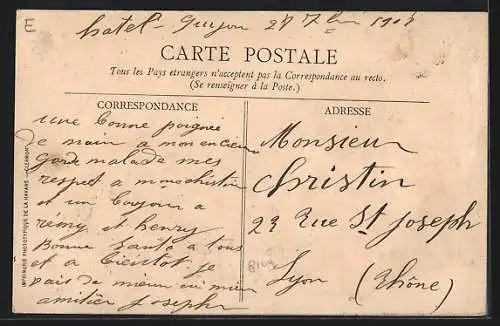 hatel-Guyon 27 7bre 190
CARTE POSTALE
Tous les Pays etrangers n'acceptent pas la Correspondance au recto.
(Se renseigner à la Poste.)
CORRESPONDANCE
une bonne poignée
de main a mon encien
garde malade mes
respet a mme christin
et un bonjour a
rémy et henry
Bonne Santé a tous
et a bientot je
vais de mieux en mieux
amitier Joseph
ADRESSE
Monsieur
Christin
23 Rue St Joseph
Lyon (Rhône)
IMPRIMERIE PHOTOTYPIQUE DE LA HAVANE — CLERMONT